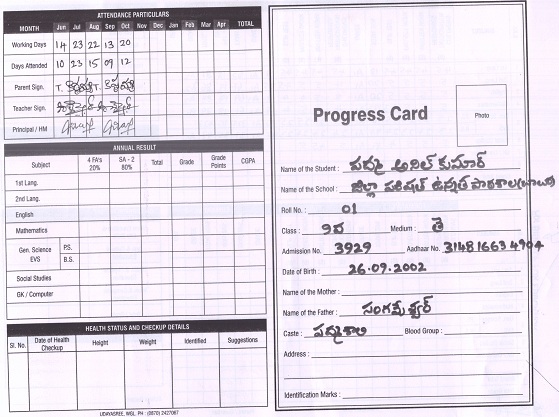 ATTENDANCE PARTICULARS
MONTH Jun Jul Aug Sep Oct Nov Dec Jan Feb Mar Apr TOTAL
Working Days 14 23 22 13 20
Days Attended 10 23 15 09 12
Parent Sign.
Teacher Sign.
Principal / HM
ANNUAL RESULT
Subject 4 FA's 20% SA - 2 80% Total Grade Grade Points CGPA
1st Lang.
2nd Lang.
English
Mathematics
Gen. Science EVS P.S.
B.S.
Social Studies
GK / Computer
HEALTH STATUS AND CHECKUP DETAILS
Sl. No. Date of Health Checkup Height Weight Identified Suggestions
UDAYASREE, WGL. PH : (0870) 2427087
Progress Card
Photo
Name of the Student : పద్మ అనిల్ కుమార్
Name of the School : జిల్లా పరిషత్ ఉన్నత పాఠశాల
Roll No. : 01
Class : 9వ Medium : తె
Admission No. 3929 Aadhaar No. 3148 1663 4904
Date of Birth : 26.09.2002
Name of the Mother :
Name of the Father : సంగమేశ్వర్
Caste : పద్మశాలి Blood Group :
Address :
Identification Marks :